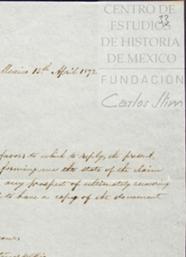 CENTRO DE
ESTUDIOS
DE HISTORIA
DE MEXICO
FUNDACIÓN
Carlos Slim
33
Mexico 18th April 1872
favors to which to reply, the present
forming me the state of the claim
any prospect of ultimately
to have a copy of the document